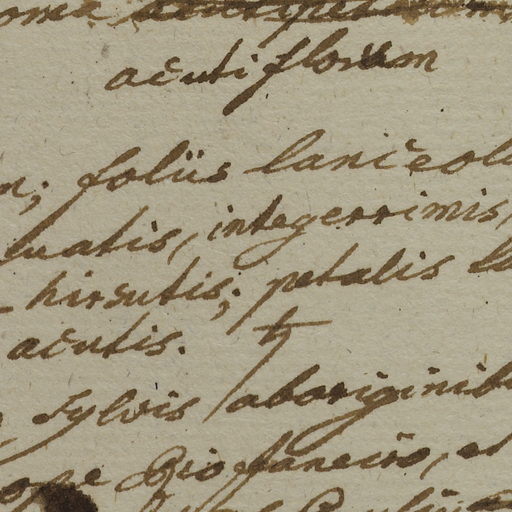 acutiflorum
foliis lanceola
uatis, integerrimis,
hirsutis; petalis la
acutis. ♄
Sylvis aboriginib
Rio Janeiro, et